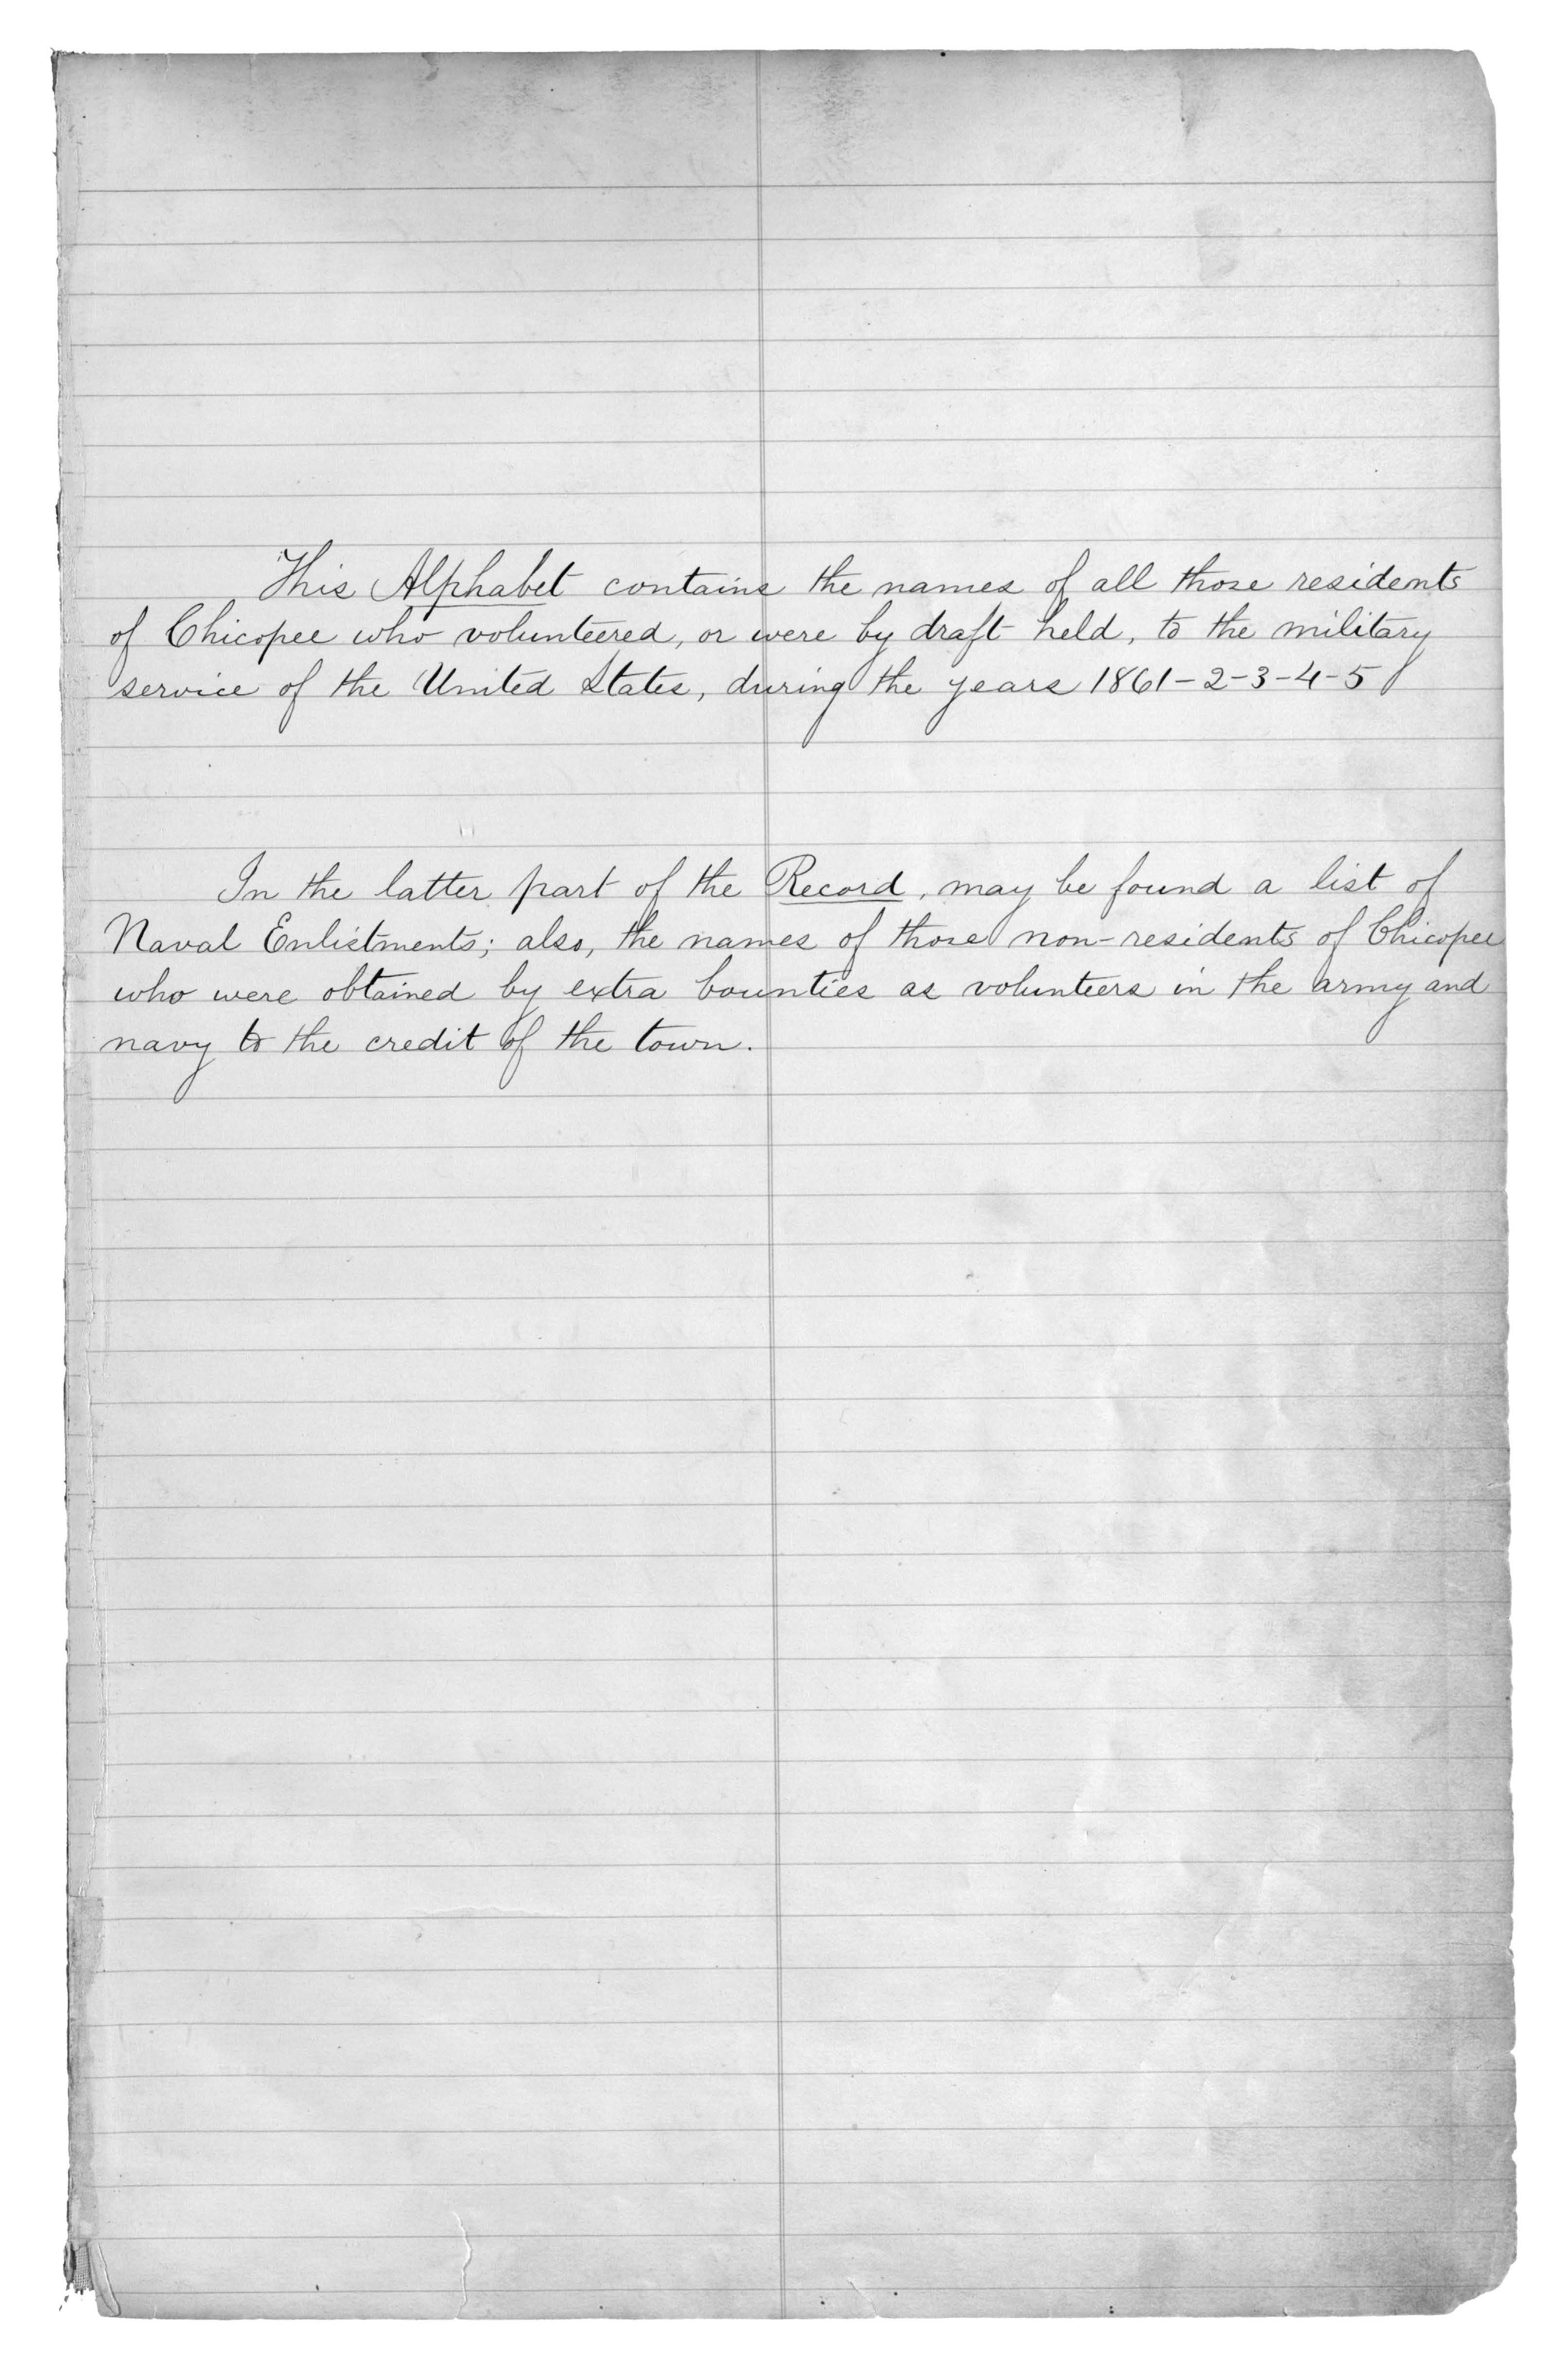 This Alphabet contains the names of all those residents
of Chicopee who volunteered, or were by draft held, to the military
service of the United States, during the years 1861-2-3-4-5
In the latter part of the Record, may be found a list of
Naval Enlistments; also, the names of those non-residents of Chicopee
who were obtained by extra bounties as volunteers in the army and
navy to the credit of the town.